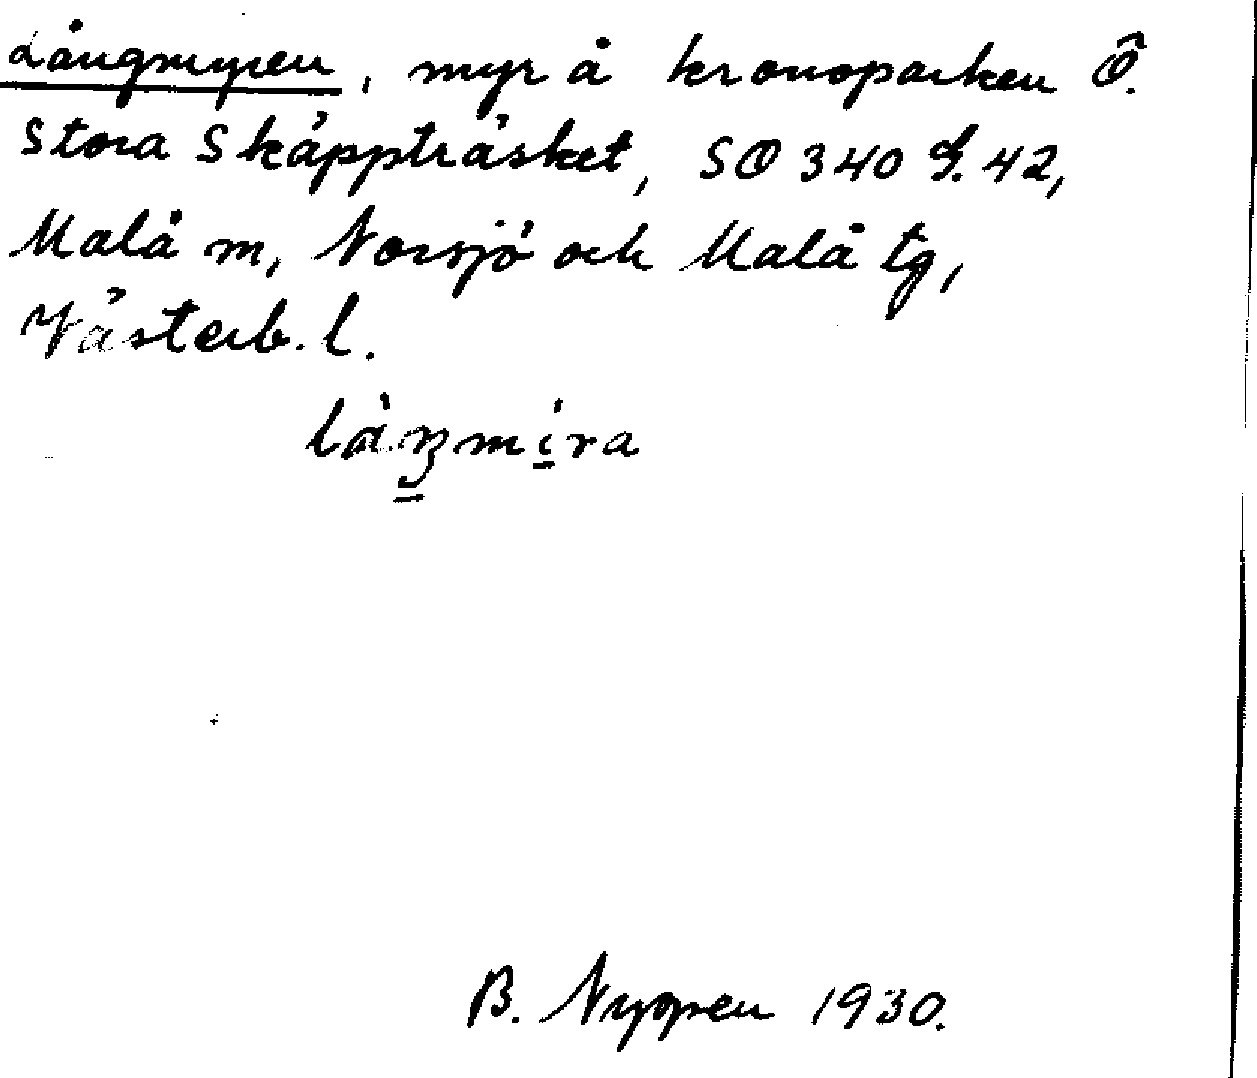 Långmyren, myr å kronoparken Ö.
Stora Skäppträsket, SO 340 g. 42,
Malå m, Norsjö och Malå tg,
Västerb. l.
làŋmíra
B. Nyopen 1930.